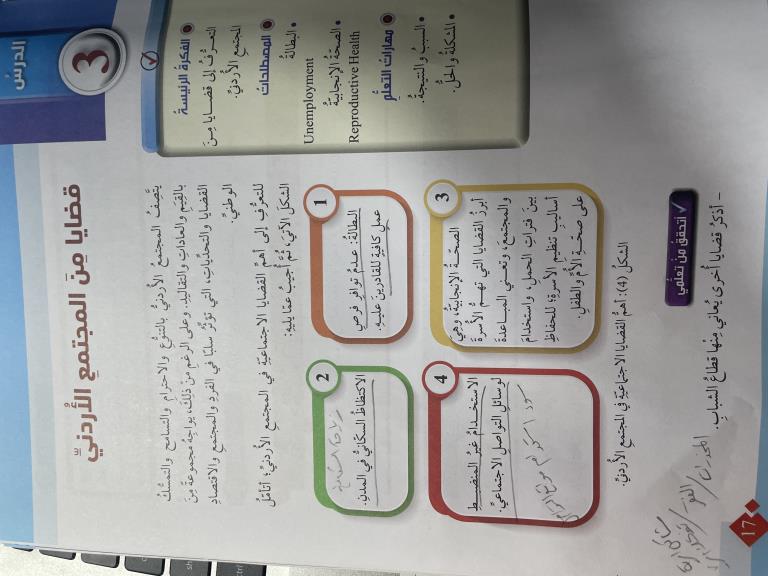 الدرس
3
قضايا مِنَ المجتمعِ الأُردنيِّ
الفكرة الرئيسة
التعرُّفُ إلى قضايا مِنَ
المجتمعِ الأُردنيِّ.
المصطلحات
• البطالةُ
Unemployment
• الصحّةُ الإنجابيّةُ
Reproductive Health
مهارات التعلُّم
• السببُ والنتيجةُ.
• المشكلةُ والحلُّ.
يتَّصِفُ المجتمعُ الأُردنيُّ بالتنوُّعِ والاحترامِ والتسامحِ والتمسُّكِ
بالقِيَمِ والعاداتِ والتقاليدِ. وعلى الرغمِ مِنْ ذلكَ، يواجِهُ مجموعةً مِنَ
القضايا والتحدّياتِ، التي تؤثِّرُ سلبًا في الفردِ والمجتمعِ والاقتصادِ
الوطنيِّ.
للتعرُّفِ إلى أهمِّ القضايا الاجتماعيّةِ في المجتمعِ الأُردنيِّ؛ أتأمَّلُ
الشكلَ الآتيَ، ثمَّ أُجيبُ عمّا يليهِ:
1
البطالةُ: عدمُ توافرِ فرصِ
عملٍ كافيةٍ للقادرينَ عليهِ.
2
الاكتظاظُ السكّانيُّ في المدنِ.
3
الصحّةُ الإنجابيّةُ، وهيَ
أبرزُ القضايا التي تهمُّ الأسرةَ
والمجتمعَ، وتعني المباعدةَ
بينَ فتراتِ الحملِ، واستخدامَ
أساليبِ تنظيمِ الأسرةِ؛ للحفاظِ
على صحّةِ الأمِّ والطفلِ.
4
الاستخدامُ غيرُ المنضبطِ
لوسائلِ التواصلِ الاجتماعيِّ.
الشكلُ (4): أهمُّ القضايا الاجتماعيّةِ في المجتمعِ الأُردنيِّ.
أتحقّقُ مِنْ تعلُّمي
- أذكرُ قضايا أخرى يُعاني مِنها قطاعُ الشبابِ.
17